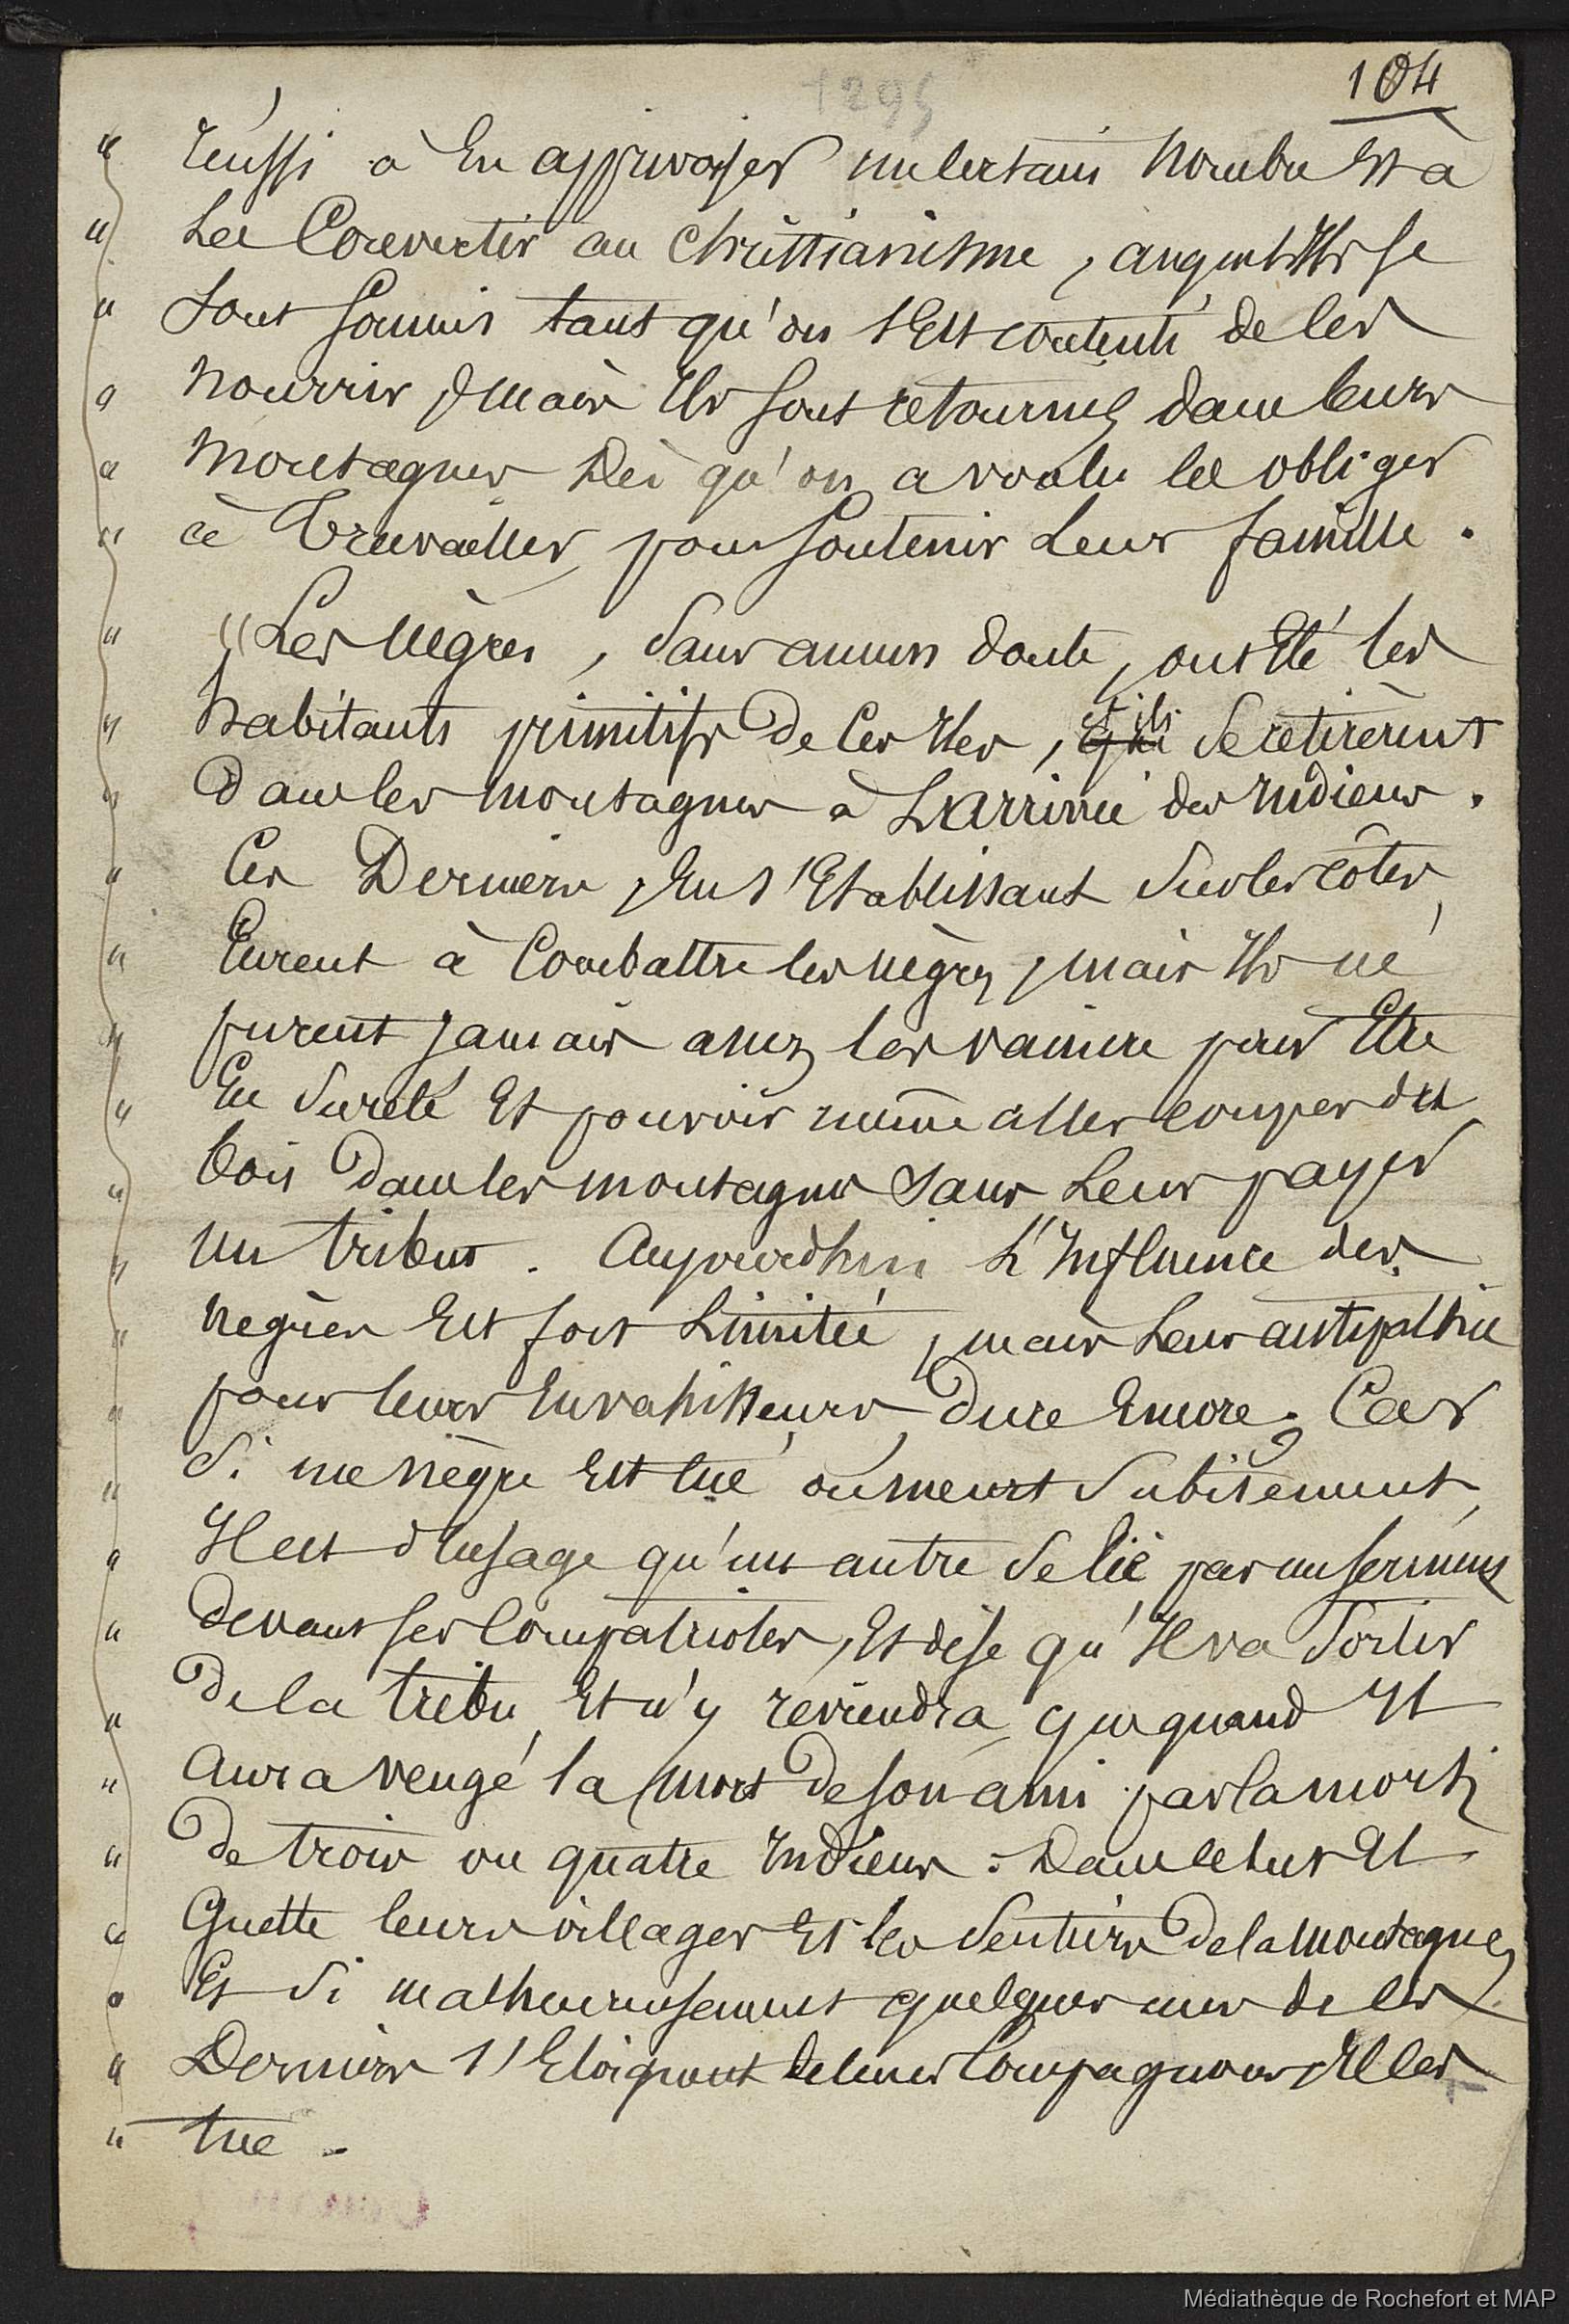 1295
104
" réussi à En apprivoiser un certain Nombre Et à
" Les Convertir au Christianisme, auquel Ils se
" sont soumis tant qu'on s'Est contenté de les
" Nourrir, mais Ils sont retournés dans leurs
" Montagnes Dès qu'on a voulu les obliger
" à Travailler pour soutenir Leur famille.
" "Les Nègres, sans aucun doute, ont Eté les
" habitants primitifs De Ces Iles, qui et ils se retirèrent
" Dans les montagnes à L'Arrivée des Indiens.
" Ces Derniers, En s'Etablissant sur les côtes,
" Eurent à Combattre les nègres, mais Ils ne
" purent Jamais assez les vaincre pour Etre
" En sureté Et pouvoir même aller couper du
" bois Dans les montagnes sans Leur payer
" un tribut. Aujourdhui L'Influence des
" Negres Est fort Limitée, mais Leur antipathie
" pour leurs Envahisseurs Dure Encore. Car
" si un Nègre Est tué ou meurt subitement,
" Il est d'usage qu'un autre se lie par un serment
" devant ses Compatriotes, Et dise qu'Il va sortir
" De la tribu Et n'y reviendra que quand Il
" Aura vengé la mort De son ami par la mort
" De trois ou quatre Indiens. Dans ce but Il
" Guette leurs villages Et les sentiers De la Montagne,
" Et si malheureusement quelques uns de ces
" Derniers s'Eloignent de leurs Compagnons, Il les
" tue.
Médiathèque de Rochefort et MAP